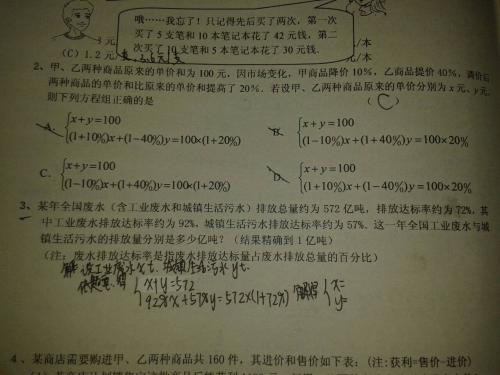 哦……我忘了！只记得先后买了两次，第一次
买了 5 支笔和 10 本笔记本花了 42 元钱，第二
次买了 10 支笔和 5 本笔记本花了 30 元钱.
(C) 1.2 元/支，3.6元/本
元/本
2、甲、乙两种商品原来的单价和为 100 元，因市场变化，甲商品降价 10%，乙商品提价 40%，调价后
两种商品的单价和比原来的单价和提高了 20%．若设甲、乙两种商品原来的单价分别为 x 元、y元
则下列方程组正确的是 （ C ）
A. {x+y=100 (1+10%)x+(1−40%)y=100×(1+20%) B. {x+y=100 (1−10%)x+(1+40%)y=100×20%
C. {x+y=100 (1−10%)x+(1+40%)y=100×(1+20%) D. {x+y=100 (1+10%)x+(1−40%)y=100×20%
3、某年全国废水（含工业废水和城镇生活污水）排放总量约为 572 亿吨，排放达标率约为 72%，其
中工业废水排放达标率约为 92%，城镇生活污水排放达标率约为 57%．这一年全国工业废水与城
镇生活污水的排放量分别是多少亿吨？（结果精确到 1 亿吨）
（注：废水排放达标率是指废水排放达标量占废水排放总量的百分比）
解：设工业废水xt. 城镇生活污水 yt.
依题意，得 {x+y=572 92%x+57%y=572×(1+72%) 解得 {x= y=
4、某商店需要购进甲、乙两种商品共 160 件，其进价和售价如下表：(注：获利=售价−进价)